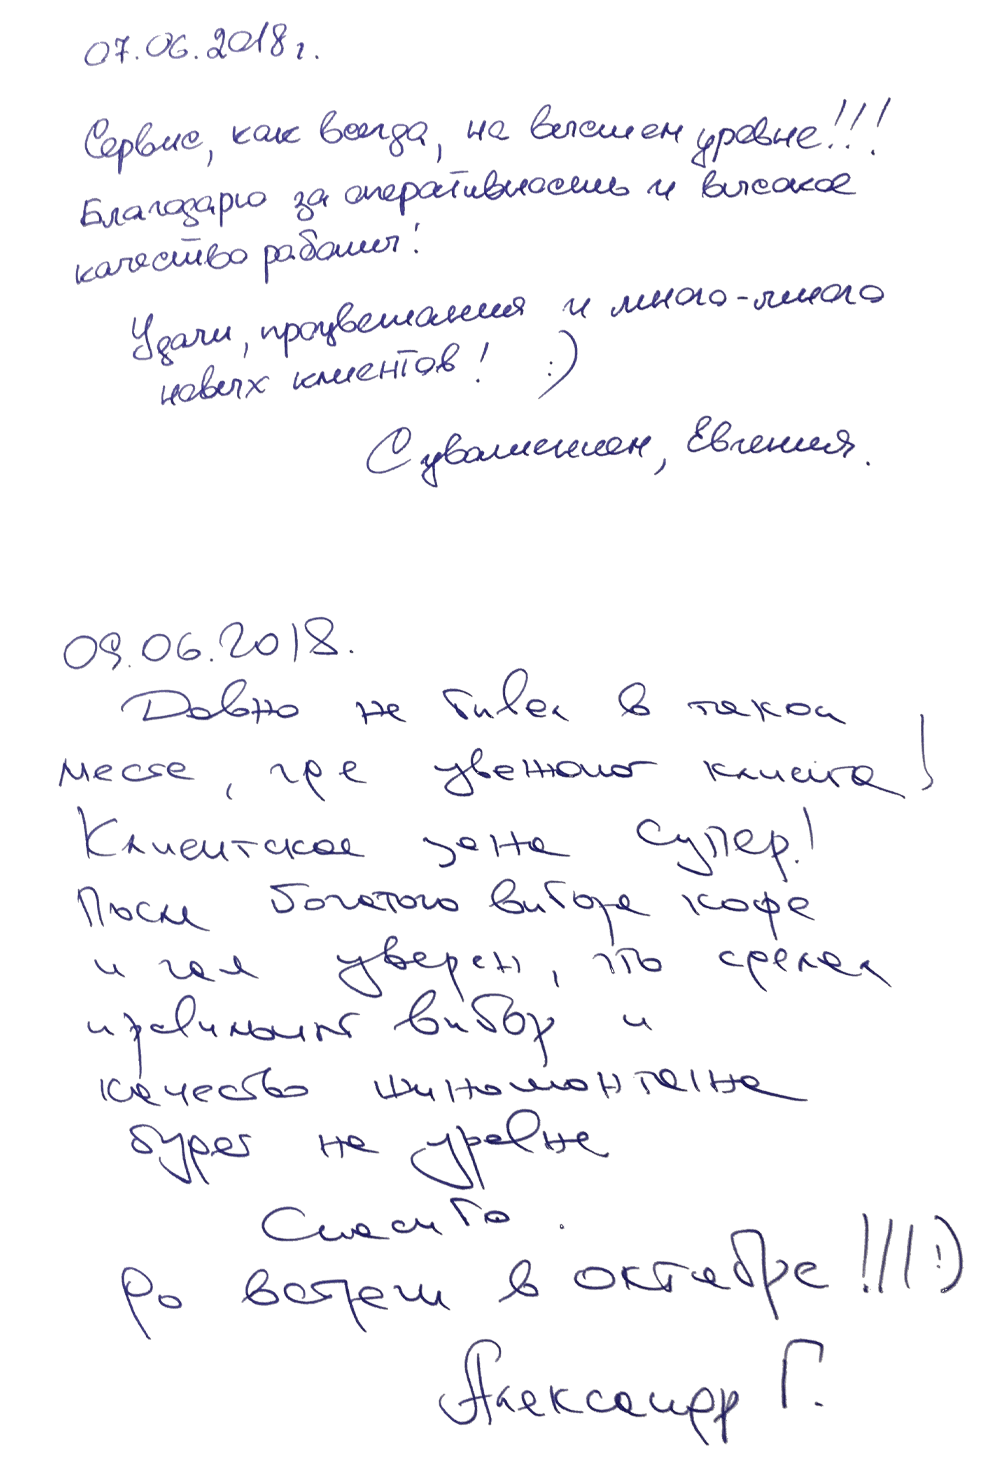 07.06.2018г.
Сервис, как всегда, на высшем уровне!!!
Благодарю за оперативность и высокое
качество работы!
Удачи, процветания и много-много
новых клиентов! :)
С уважением, Евгения.
09.06.2018.
Давно не бывал в таком
месте, где уважают клиента!
Клиентская зона супер!
После богатого выбора кофе
и чая уверен, что сделал
правильный выбор и
качество шиномонтажа
будет на уровне
Спасибо.
До встречи в октябре!!! :)
Александр Г.